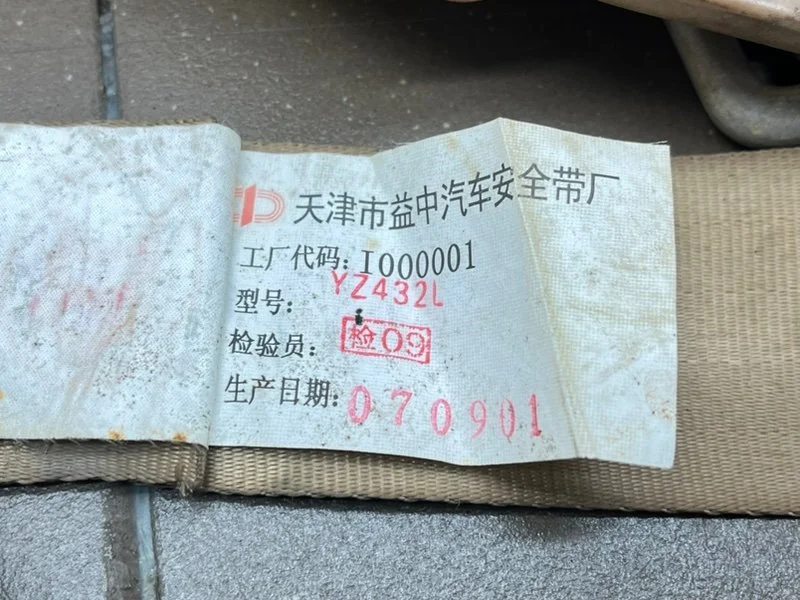 天津市益中汽车安全带厂
工厂代码：I000001
型号：YZ432L
检验员：检09
生产日期：070901